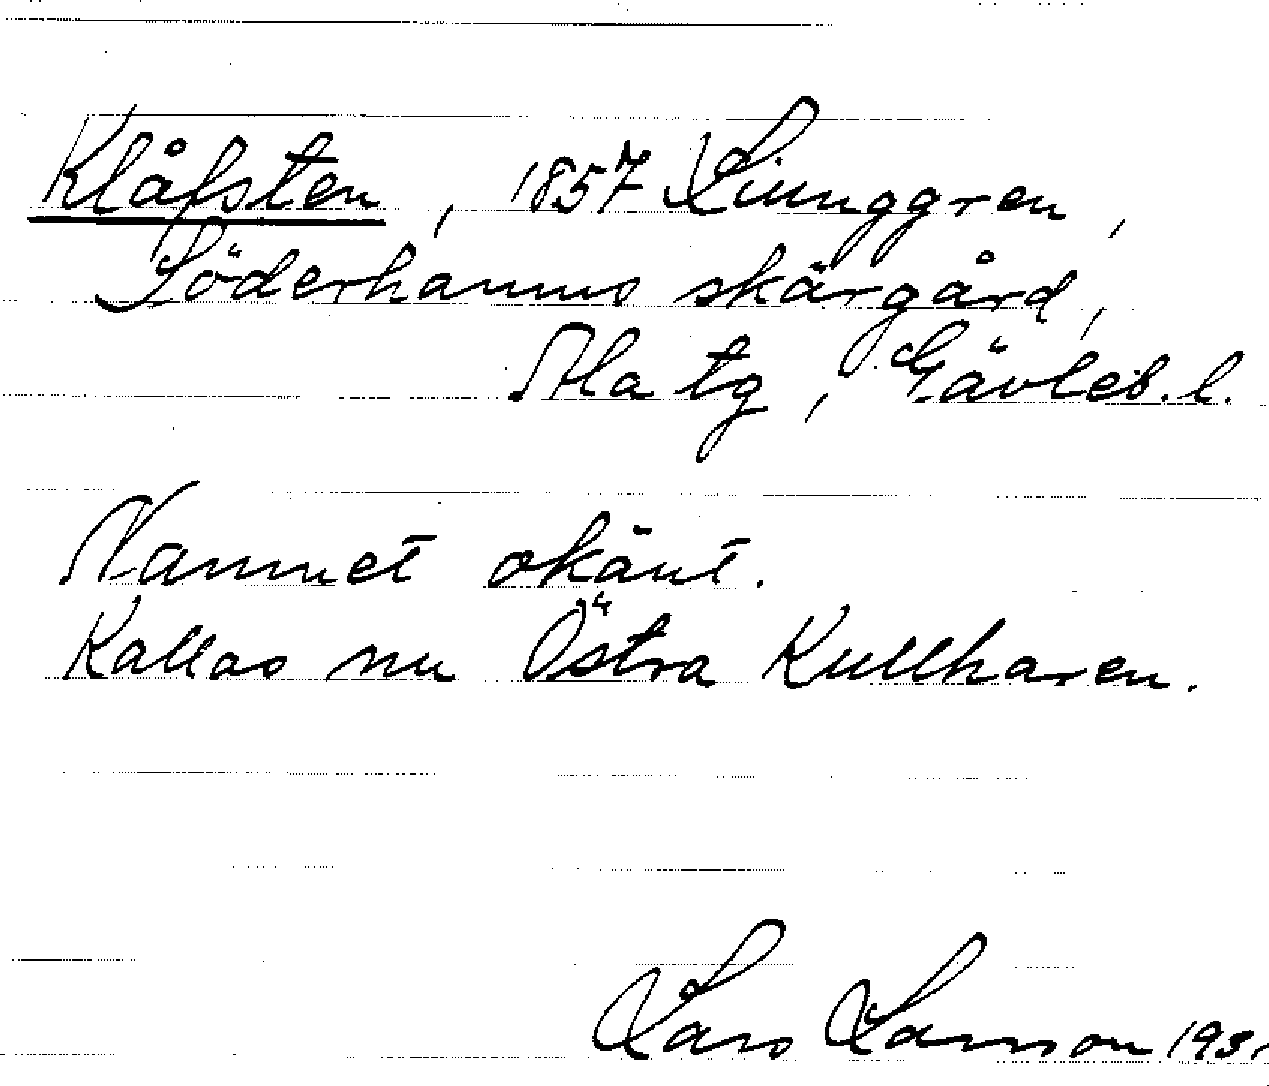 Klåfsten, 1857 Ljunggren,
Söderhamns skärgård,
Ala tg, Gävleb. l.
Namnet okänt.
Kallas nu Östra Kullharen.
Lars Larsson 193